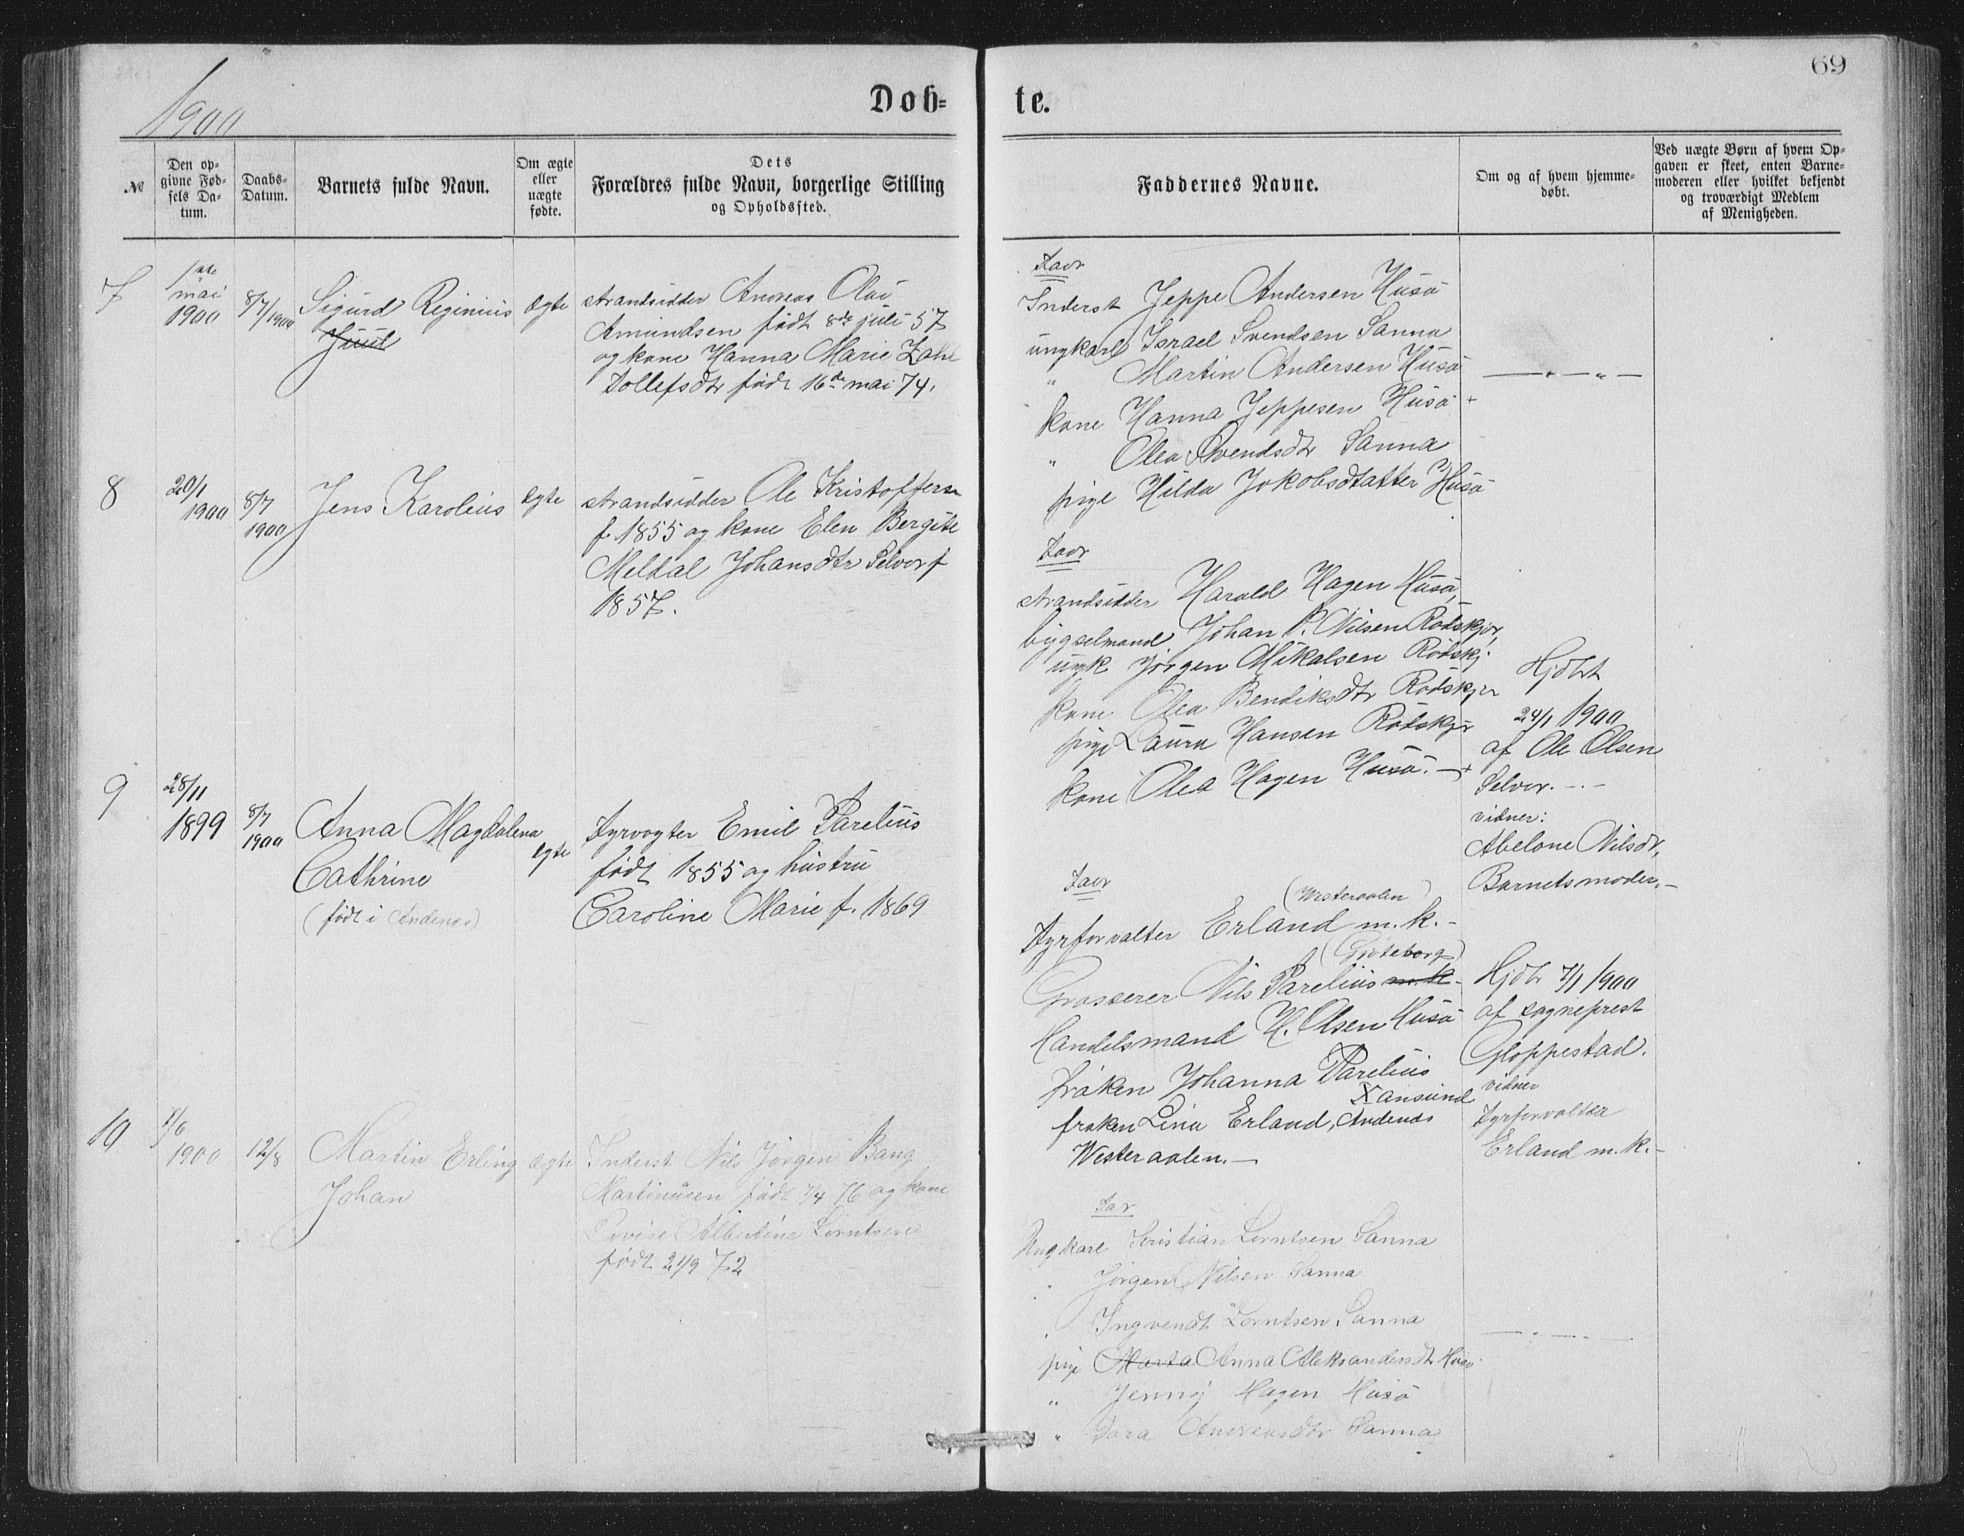 69
1900
Døb-
te.
№
Den op-
givne Fød-
sels Da-
tum.
Daabs-
Datum.
Barnets fulde Navn.
Om ægte
eller
uægte
fødte.
Dets
Forældres fulde Navn, borgerlige Stilling
og Opholdssted.
Faddernes Navne.
Om og af hvem hjemme-
døbt.
Ved uægte Børn af hvem Op-
gaven er skeet, enten Barne-
moderen eller hvilket bekjendt
og troværdigt Medlem
af Menigheden.
7
1ste
mai
1900
8/7/1900
Sigurd Reginius
Juul
Ægte
strandsidder Andreas Olai
Amundsen født 8de juli 57
og kone Hanna Marie Zahl
Dollefsdtr født 16de mai 74.
Favr
Inderst Jeppe Andersen Husø
ungkarl Israel Svendsen Sanna
" Martin Andersen Husø
kone Hanna Jeppesen Husø +
" Olea Svendsdtr Sanna
pige Hilda Jakobsdtatter Husø
8
20/1
1900
8/7
1900
Jens Karolius
Ægte
strandsidder Ole Kristoffersn
f. 1855 og kone Elen Bergite
Meldal Johansdtr Selvor f
1857.
Favr
strandsidder Harald Hagen Husø,
bygselmand Johan P. Nilsen Rødskjær,
ungk Jørgen Mikalsen Rødskj.
kone Olea Bendiksdtr Rødskjær
pige Laura Hansen Rødskjær
kone Olea Hagen Husø. — +
Hjdbt
24/1 1900
af Ole Olsen
Selvær. - . -
vidner:
Abelone Nilsdr,
Barnets moder. —
9
28/11
1899
8/7
1900
Anna Magdalena
Cathrine
(født i Andenæs)
Ægte
Fyrvogter Emil Parelius
født 1855 og hustru
Caroline Marie f. 1869
Favr
(Westeraalen)
Fyrforvalter Erland m.k. -
(Gøteborg)
Grosserer Nils Parelius m.k.
Handelsmand H. Olsen Husø
frøken Johanna Parelius
Xansund
frøken Lina Erland, Andenæs
Westeraalen. —
Hjdbt 7/1 1900
af sogneprest
Gloppestad.
vidner
Fyrforvalter
Erland m.k. -
10
1/6
1900
12/8
Martin Erling
Johan
Ægte
Inderst Nils Jørgen Bang
Martinusen født 7/4 76 og kone
Lovise Albertine Lorntsen
født 21/9 72
Fav
Ungkarl Kristian Lorntsen Sanna
" Jørgen Nilsen Sanna
" Ingvendt Lorntsen Sanna
pige Marta Anna Aleksandersdtr Husø
" Jenny Hagen Husø
" Dora Andreasdtr Sanna